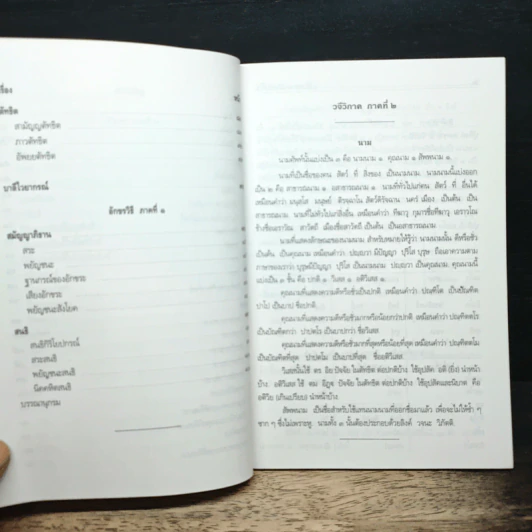 เรื่อง
ตัทธิต
สามัญญตัทธิต
ภาวตัทธิต
อัพยยตัทธิต
บาลีไวยากรณ์
อักขรวิธี ภาคที่ ๑
สมัญญาภิธาน
สระ
พยัญชนะ
ฐานกรณ์ของอักขระ
เสียงอักขระ
พยัญชนะสังโยค
สนธิ
สนธิกิริโยปกรณ์
สระสนธิ
พยัญชนะสนธิ
นิคคหิตสนธิ
บรรณานุกรม
วจีวิภาค ภาคที่ ๒
นาม
นามศัพท์นั้นแบ่งเป็น ๓ คือ นามนาม ๑ คุณนาม ๑ สัพพนาม ๑
นามที่เป็นชื่อของคน สัตว์ ที่ สิ่งของ เป็นนามนาม. นามนามนี้แบ่งออก
เป็น ๒ คือ สาธารณนาม ๑ อสาธารณนาม ๑. นามที่ทั่วไปแก่คน สัตว์ ที่ อื่นได้
เหมือนคำว่า มนุสฺโส มนุษย์ ติรจฺฉาโน สัตว์ดิรัจฉาน นครํ เมือง เป็นต้น เป็น
สาธารณนาม. นามที่ไม่ทั่วไปแก่สิ่งอื่น เหมือนคำว่า ทีฆาวุ กุมารชื่อทีฆาวุ เอราวโณ
ช้างชื่อเอราวัณ สาวัตถี เมืองชื่อสาวัตถี เป็นต้น เป็นอสาธารณนาม
นามที่แสดงลักษณะของนามนาม สำหรับหมายให้รู้ว่า นามนามนั้น ดีหรือชั่ว
เป็นต้น เป็นคุณนาม เหมือนคำว่า ปญฺญวา มีปัญญา ปุริโส บุรุษ ถือเอาความตาม
ภาษาของเราว่า บุรุษมีปัญญา ปุริโส เป็นนามนาม ปญฺญวา เป็นคุณนาม. คุณนามนี้
แบ่งเป็น ๓ ชั้น คือ ปกติ ๑ วิเสส ๑ อติวิเสส ๑
คุณนามที่แสดงความดีหรือชั่วเป็นปกติ เหมือนคำว่า ปณฺฑิโต เป็นบัณฑิต
ปาโป เป็นบาป ชื่อปกติ.
คุณนามที่แสดงความดีหรือชั่วมากหรือน้อยกว่าปกติ เหมือนคำว่า ปณฺฑิตตโร
เป็นบัณฑิตกว่า ปาปตโร เป็นบาปกว่า ชื่อวิเสส
คุณนามที่แสดงความดีหรือชั่วมากที่สุดหรือน้อยที่สุด เหมือนคำว่า ปณฺฑิตตโม
เป็นบัณฑิตที่สุด ปาปตโม เป็นบาปที่สุด ชื่ออติวิเสส
วิเสสนั้นใช้ ตร อิย ปัจจัย ในตัทธิต ต่อปกติบ้าง ใช้อุปสัค อติ (ยิ่ง) นำหน้า
บ้าง อติวิเสส ใช้ ตม อิฏฺฐ ปัจจัย ในตัทธิต ต่อปกติบ้าง ใช้อุปสัคและนิบาต คือ
อติวิย (เกินเปรียบ) นำหน้าบ้าง
สัพพนาม เป็นชื่อสำหรับใช้แทนนามนามที่ออกชื่อมาแล้ว เพื่อจะไม่ให้ซ้ำ ๆ
ซาก ๆ ซึ่งไม่เพราะหู. นามทั้ง ๓ นั้นต้องประกอบด้วยลิงค์ วจนะ วิภัตติ.